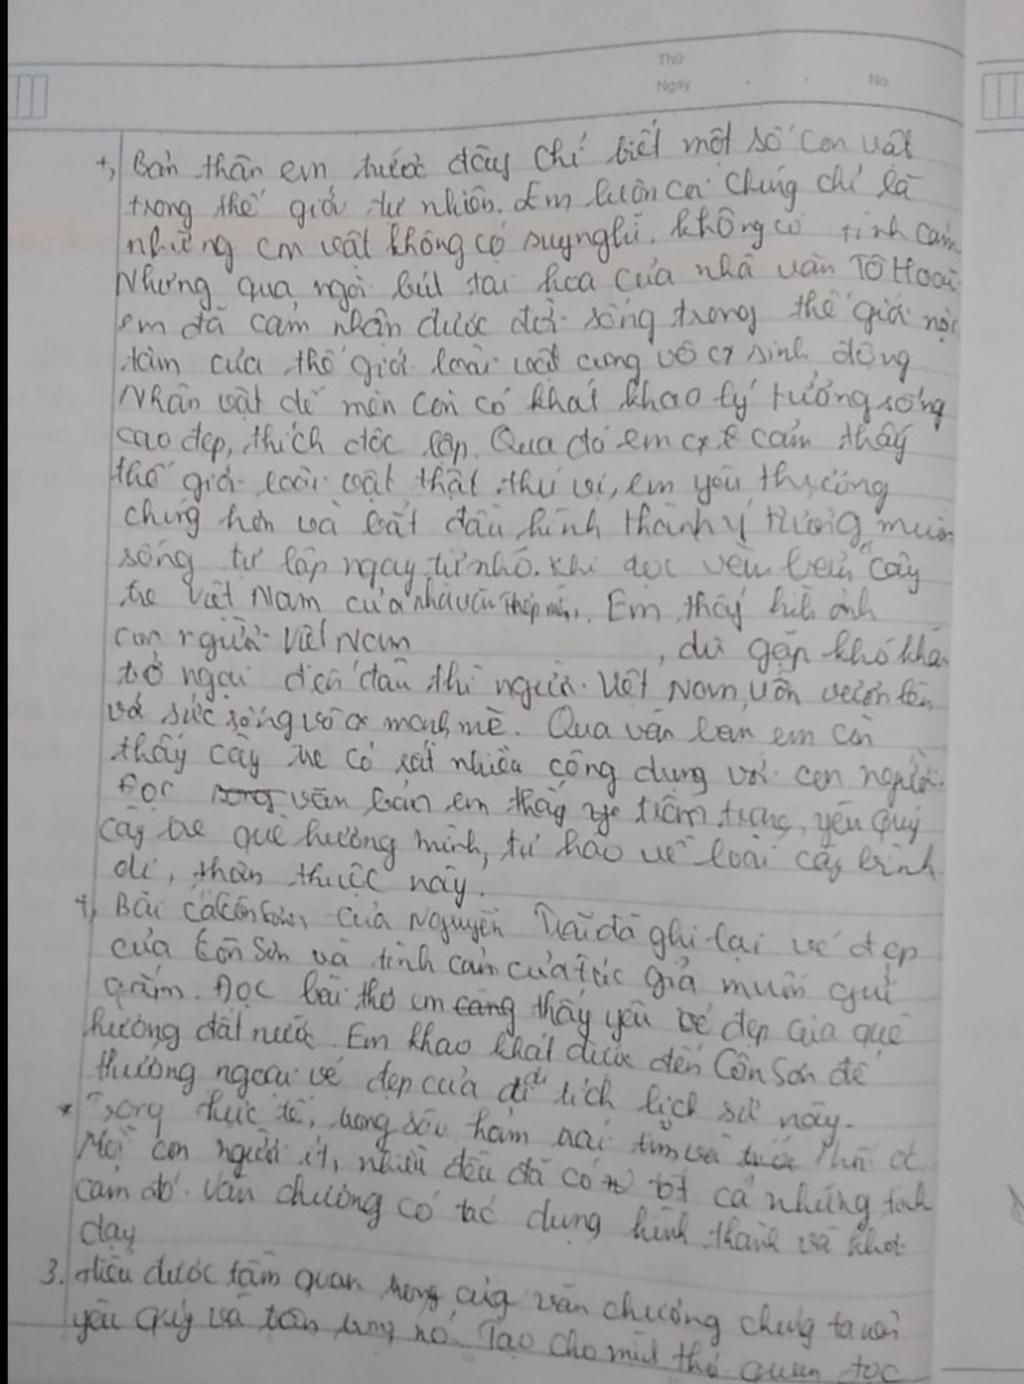 Thứ
Ngày No.
+, Bản thân em trước đây chỉ biết một số con vật
trong thế giới tự nhiên. Em luôn coi chúng chỉ là
những con vật không có suy nghĩ, không có tình cảm.
Nhưng qua ngòi bút tài hoa của nhà văn Tô Hoài
em đã cảm nhận được đời sống trong thế giới nội
tâm của thế giới loài vật cũng vô cx sinh động
Nhân vật dế mèn còn có khát khao lý tưởng sống
cao đẹp, thích độc lập. Qua đó em cx cảm thấy
thế giới loài vật thật thú vị, em yêu thương
chúng hơn và bắt đầu hình thành ý tưởng muốn
sống tự lập ngay từ nhỏ. Khi đọc văn bản "cây
tre Việt Nam của nhà văn Thép mới, Em thấy hình ảnh
con người Việt Nam , dù gặp khó khăn
trở ngại đến đâu thì người Việt Nam vẫn vươn lên
với sức sống vô cx mạnh mẽ. Qua văn bản em còn
thấy cây tre có rất nhiều công dụng với con người.
Đọc văn bản em thấy trân trọng, yêu quý
cây tre quê hương mình, tự hào về loài cây bình
dị, thân thuộc này.
+, Bài ca Côn Sơn, của Nguyễn Trãi đã ghi lại vẻ đẹp
của Côn Sơn và tình cảm của tác giả muốn gửi
gắm. Đọc bài thơ em càng thấy yêu vẻ đẹp của quê
hương đất nước. Em khao khát được đến Côn Sơn để
thưởng ngoạn vẻ đẹp của di tích lịch sử này.
* Song thực tế, trong sâu thẳm mỗi
Mỗi con người ít, nhiều đều đã có tất cả những tình
cảm đó. Văn chương có tác dụng hình thành và khơi
dạy
3. Hiểu được tầm quan trọng của văn chương chúng ta
yêu quý và trân trọng nó. Tạo cho mình thói quen đọc